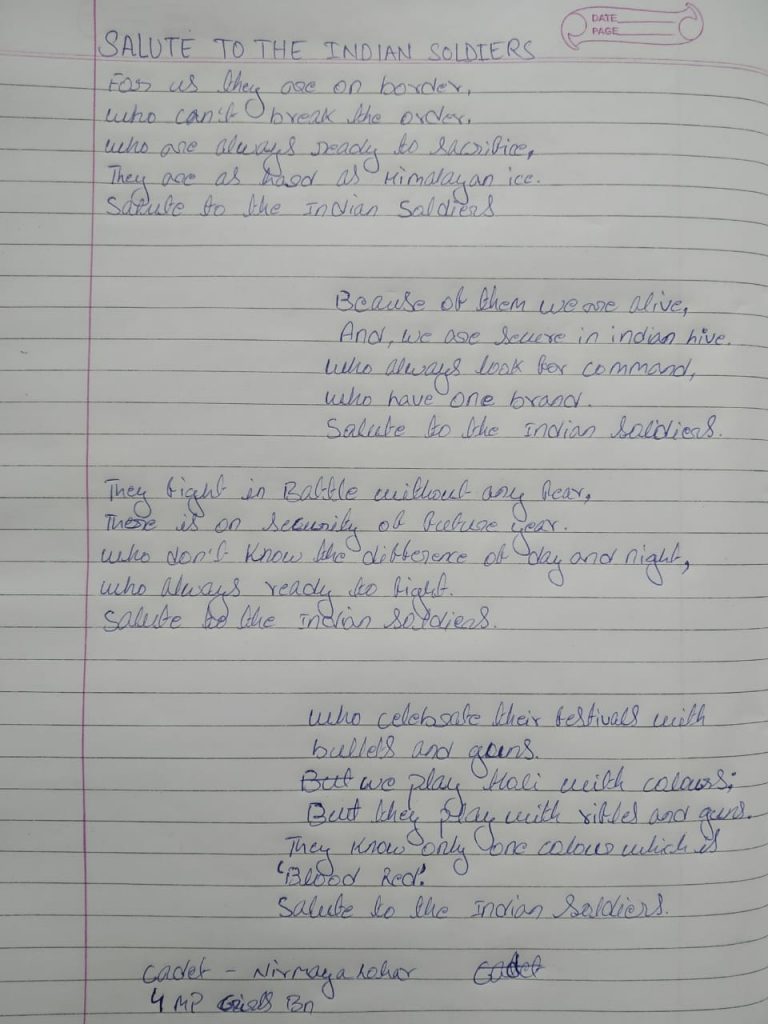 DATE
PAGE
SALUTE TO THE INDIAN SOLDIERS
For us they are on border,
who can't break the order.
who are always ready to sacrifice,
They are as hard as Himalayan ice.
Salute to the Indian Soldiers
Beause of them we are alive,
And, we are secure in indian hive.
who always look for command,
who have one brand.
Salute to the Indian Soldiers.
They fight in Battle without any fear,
There is on security of future year.
who don't know the difference of day and night,
who always ready to fight.
Salute to the Indian Soldiers.
who celebrate their festivals with
bullets and guns.
But we play Holi with colours;
But they play with rifles and guns.
They know only one colour which is
'Blood Red'.
Salute to the Indian Soldiers.
Cadet - Nirmaya Lohar Cadet
4 MP Girls Bn